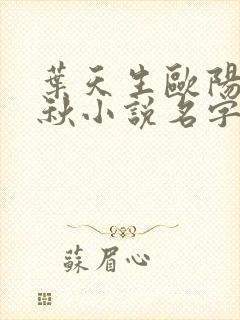 葉天生歐陽
秋小說名字
蘇眉心